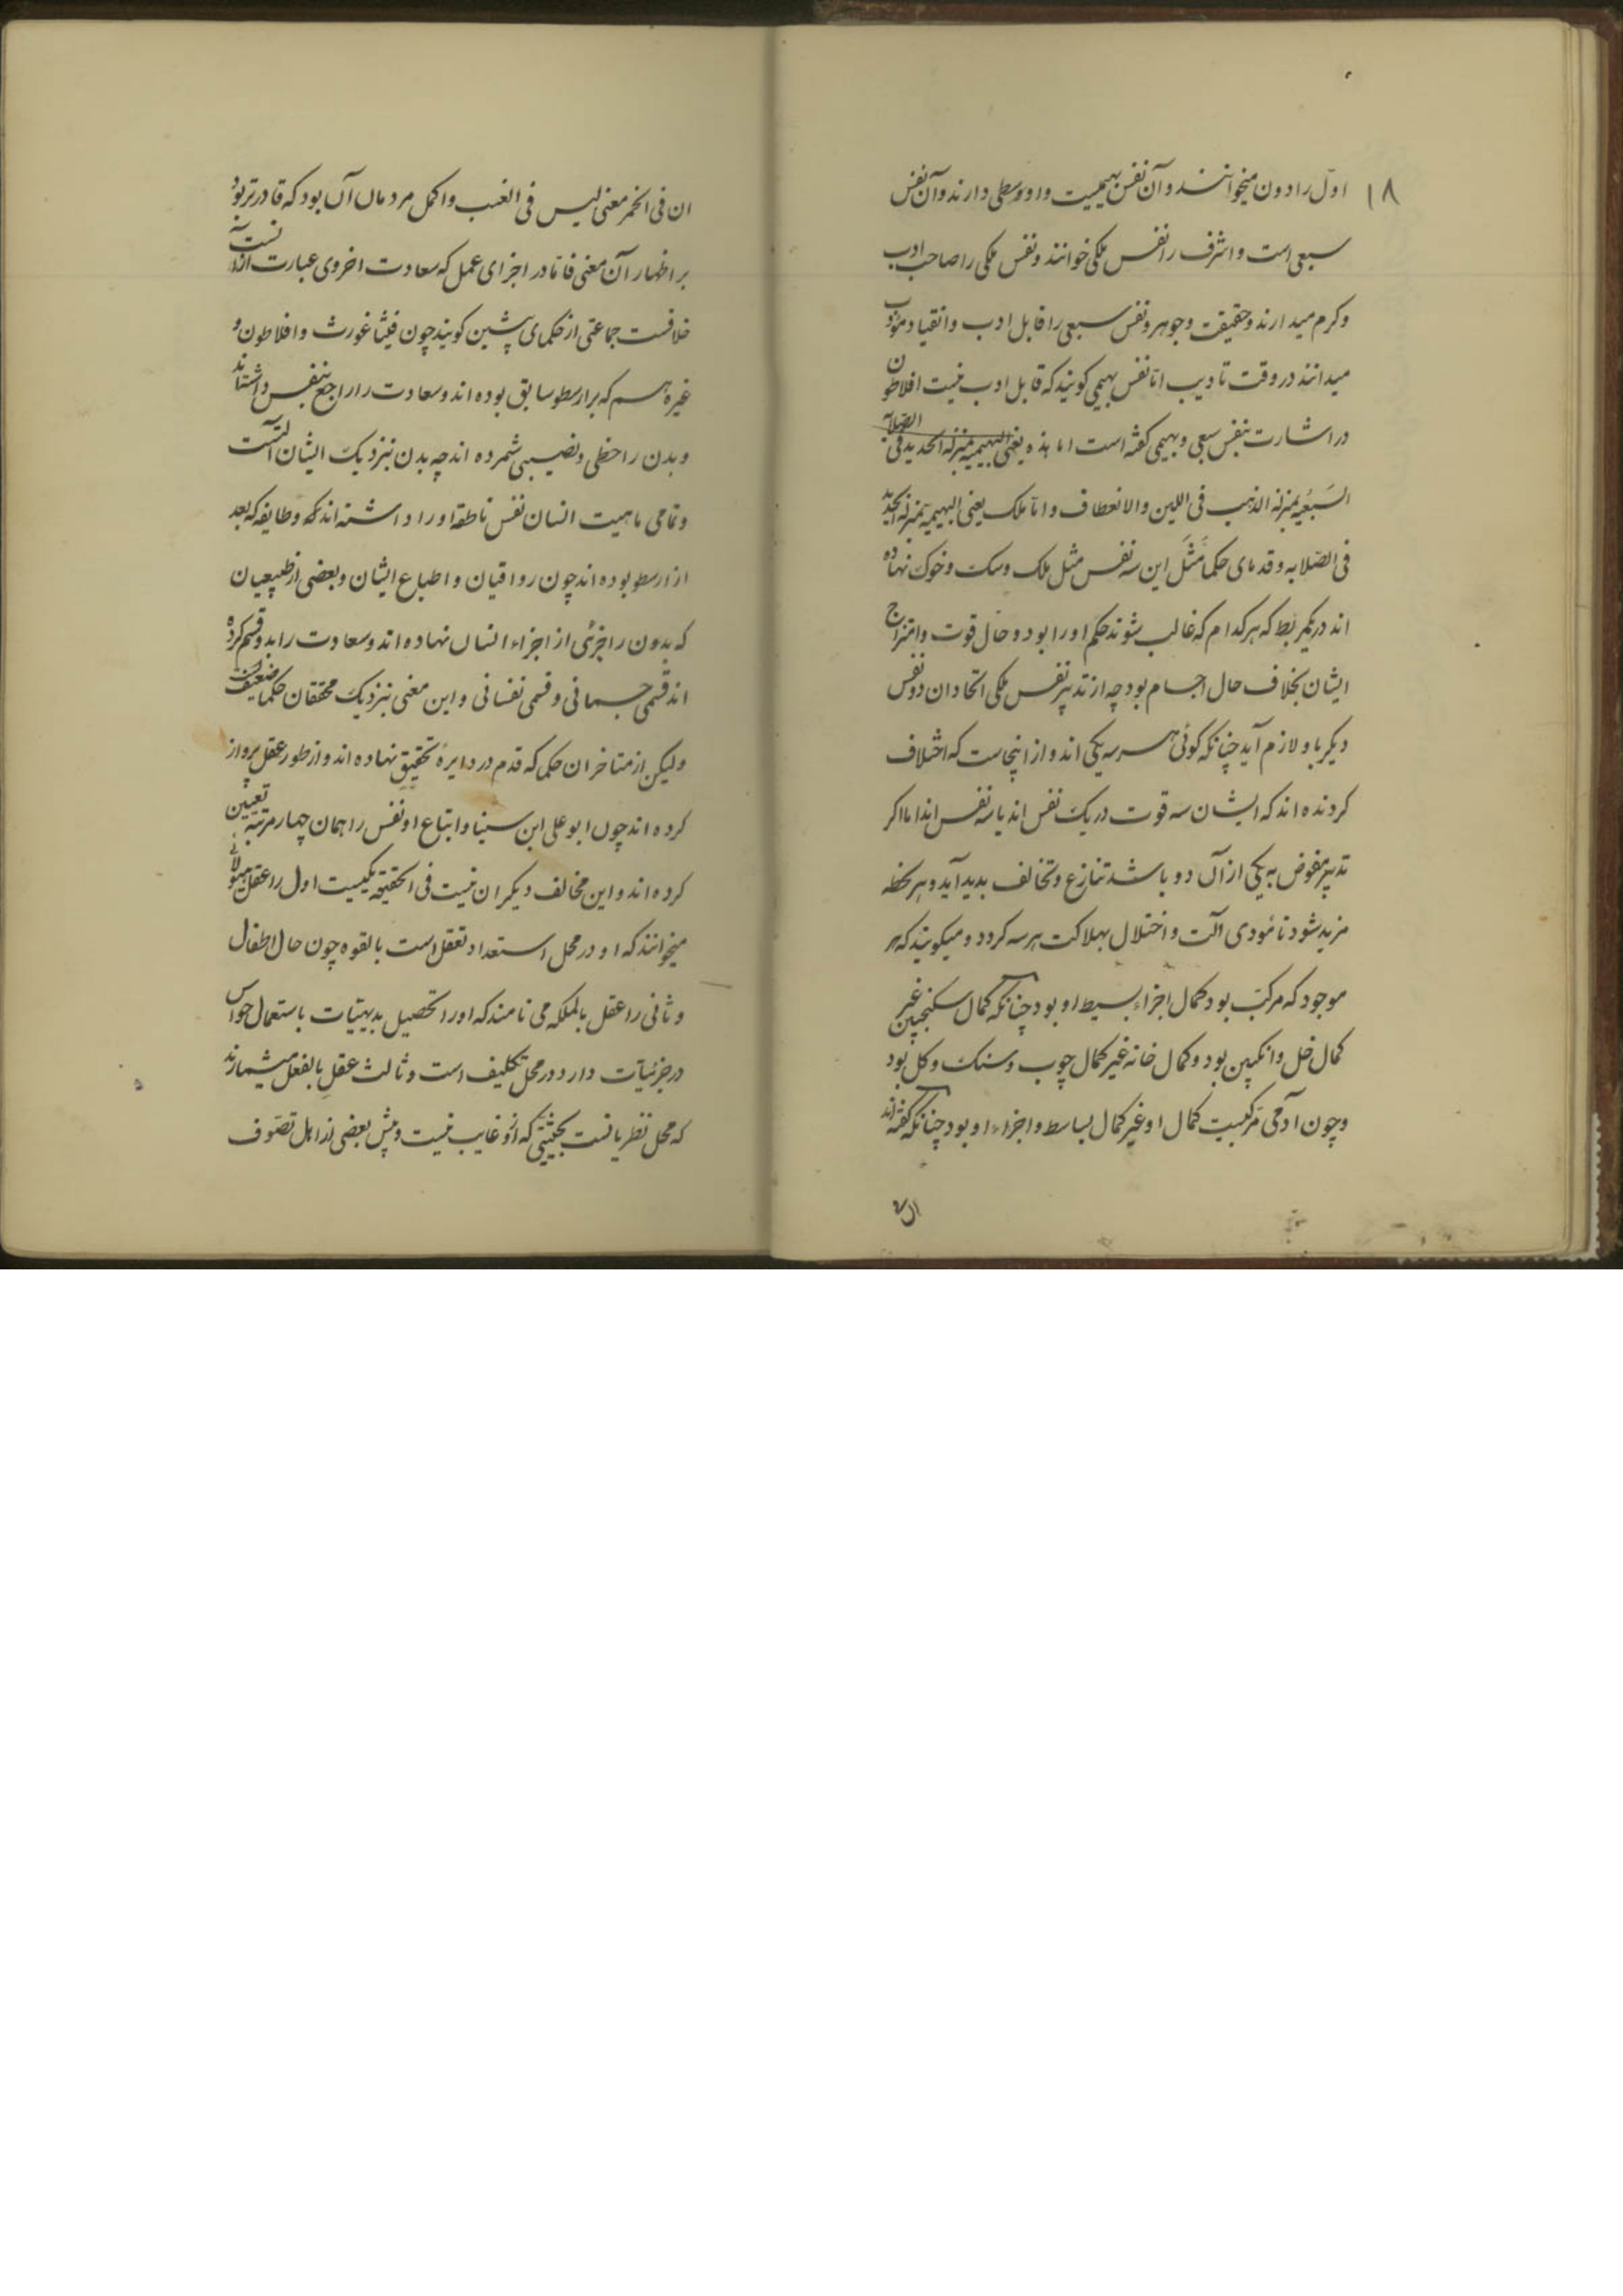 ۱۸
اول را دون میخوانند و آن نفس بهیمیست و اوسطی دارند و آن نفس
سبعی است و اشرف را نفس ملکی خوانند و نفس ملکی را صاحب ادب
و کرم میدارند و حقیقت و جوهر و نفس سبعی را قابل ادب و انقیاد مؤدب
میدانند در وقت تادیب اما نفس بهیمی کویند که قابل ادب نیست افلاطون
در اشارت بنفس سبعی و بهیمی کفته است اما هذه یعنی البهیمیة بمنزلة الحدید فی الصلابة
السَبُعیه بمنزلة الذهب فی اللین والانعطاف و اما تلک یعنی البهیمیه بمنزلة الحدید
فی الصلابه و قدمای حکما مَثَل این سه نفس مثل ملک و سک و خوک نهاده
اند در یکمربط که هر کدام که غالب شوند حکم او را بود و حال قوت و امتزاج
ایشان بخلاف حال اجسام بود چه از تدبیر نفس ملکی اتحاد ان دو نفس
دیکر باو لازم آید چنانکه کوئی هر سه یکی اند و از اینجاست که اختلاف
کردنده اند که ایشان سه قوت در یک نفس اند یا سه نفس اند اما اکر
تدبیر مفوض به یکی از آن دو باشد تنازع و تخالف بدید آید و هر لحظه
مزید شود تا مؤدی آلت و اختلال بهلاکت هر سه کردد و میکویند که هر
موجود که مرکب بود کمال اجزاء بسیط او بود چنانکه کمال سکنجبین غیر
کمال خل و انکبین بود و کمال خانه غیر کمال چوب و سنک و کل بود
و چون آدمی مرکبیت کمال او غیر کمال بساسط و اجزاء او بود چنانکه کفته اند
ان فی الخمر معنی لیس فی العنب و اکمل مردمان آن بود که قادرتر بود
بر اظهار آن معنی فاما در اجزای عمل که سعادت اخروی عبارت از آنست
خلافست جماعتی از حکمای پیشین کویند چون فیثاغورث و افلاطون و
غیرهم که بر ارسطو سابق بوده اند و سعادت را راجع بنفس داشته اند
و بدن را حظی و نصیبی شمرده اند چه بدن بنزدیک ایشان آلتست
و تمامی ماهیت انسان نفس ناطقه او را داشته اند و طایفه که بعد
از ارسطو بوده اند چون رواقیان و اطباع ایشان و بعضی از طبیعیان
که بدون را جزئی از اجزاء انسان نهاده اند و سعادت را بدو قسم کرده
اند قسمی جسمانی و قسمی نفسانی و این معنی بنزدیک محققان حکما ضعیفست
ولیکن از متاخران حکمی که قدم در دایرۀ تحقیق نهاده اند و از طور عقل پرواز
کرده اند چون ابو علی ابن سینا و اتباع او نفس را همان چهار مرتبه تعیین
کرده اند و این مخالف دیکران نیست فی الحقیقه یکیست اول را عقل هیولانی
میخوانند که او در محل استعداد تعقل است بالقوه چون حال اطفال
و ثانی را عقل بالملکه می نامند که او را تحصیل بدیهیات باستعمال حواس
در جزئیات دارد و در محل تکلیف است و ثالث عقل بالفعل میشمارند
که محل نظریاتست بحیثیتی که ازو غایب نیست و پیش بعضی از اهل تصوف